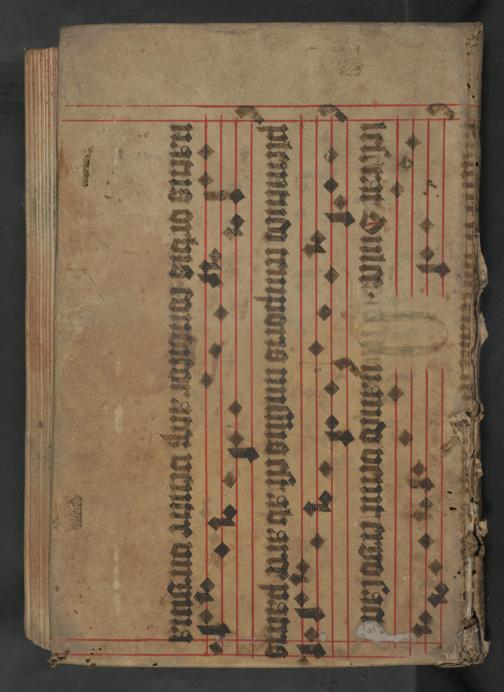 uando venit ergo sacri
plenitudo temporis missus est ab arce patris
natus orbis conditor atq ventre virgina